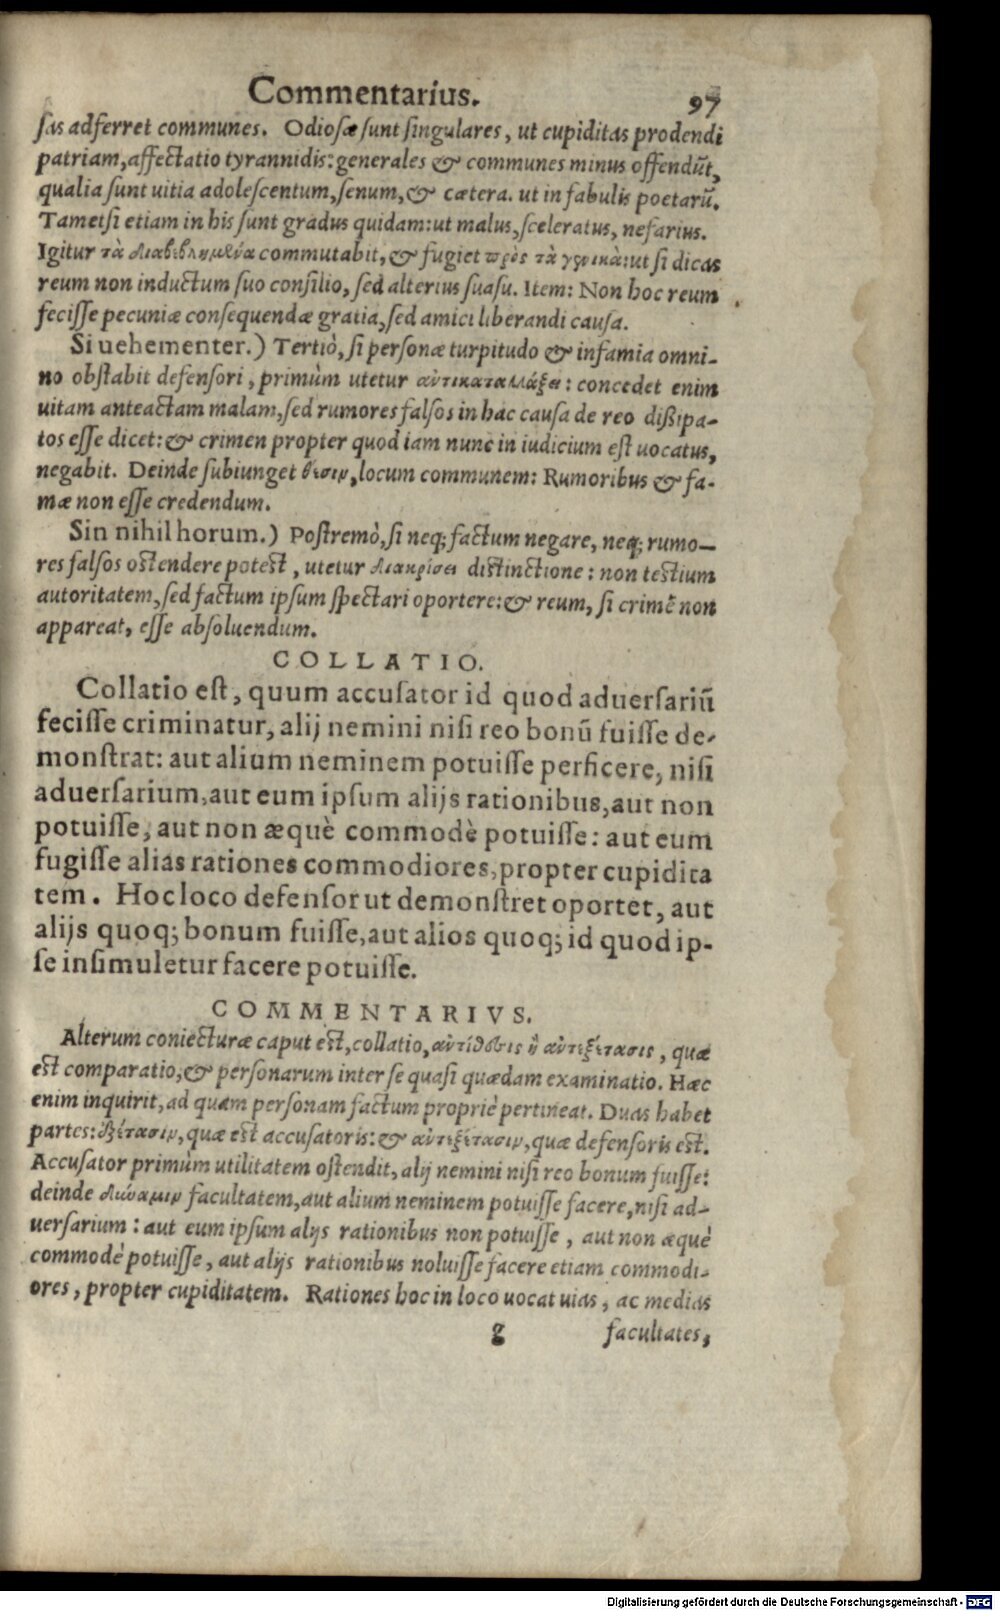 Commentarius. 97
ſas adferret communes. Odioſæ ſunt ſingulares, ut cupiditas prodendi
patriam, affectatio tyrannidis: generales & communes minus offendũt,
qualia ſunt uitia adoleſcentum, ſenum, & cætera. ut in fabulis poetarũ.
Tametſi etiam in his ſunt gradus quidam: ut malus, ſceleratus, nefarius.
Igitur τὰ διαβεβλημένα commutabit, & fugiet πρὸς τὰ γενικὰ: ut ſi dicas
reum non inductum ſuo conſilio, ſed alterius ſuaſu. Item: Non hoc reum
feciſſe pecuniæ conſequendæ gratia, ſed amici liberandi cauſa.
Si uehementer.) Tertiò, ſi perſonæ turpitudo & infamia omni-
no obſtabit defenſori, primùm utetur ἀντικαταλλάξει: concedet enim
uitam anteactam malam, ſed rumores falſos in hac cauſa de reo dißipa-
tos eſſe dicet: & crimen propter quod iam nunc in iudicium eſt uocatus,
negabit. Deinde ſubiunget θέσιν, locum communem: Rumoribus & fa-
mæ non eſſe credendum.
Sin nihil horum.) Poſtremò, ſi neq; factum negare, neq; rumo-
res falſos oſtendere poteſt, utetur διακρίσει diſtinctione: non teſtium
autoritatem, ſed factum ipſum ſpectari oportere: & reum, ſi crimẽ non
appareat, eſſe abſoluendum.
COLLATIO.
Collatio eſt, quum accuſator id quod aduerſariũ
feciſſe criminatur, alij nemini niſi reo bonũ fuiſſe de-
monſtrat: aut alium neminem potuiſſe perficere, niſi
aduerſarium, aut eum ipſum alijs rationibus, aut non
potuiſſe, aut non æquè commodè potuiſſe: aut eum
fugiſſe alias rationes commodiores, propter cupidita
tem. Hoc loco defenſor ut demonſtret oportet, aut
alijs quoq; bonum fuiſſe, aut alios quoq; id quod ip-
ſe inſimuletur facere potuiſſe.
COMMENTARIVS.
Alterum coniecturæ caput eſt, collatio, ἀντίθεσις ἢ ἀντεξέτασις, quæ
eſt comparatio, & perſonarum inter ſe quaſi quædam examinatio. Hæc
enim inquirit, ad quam perſonam factum propriè pertineat. Duas habet
partes: ἐξέτασιν, quæ eſt accuſatoris: & ἀντεξέτασιν, quæ defenſoris eſt.
Accuſator primùm utilitatem oſtendit, alij nemini niſi reo bonum fuiſſe:
deinde δύναμιν facultatem, aut alium neminem potuiſſe facere, niſi ad-
uerſarium: aut eum ipſum alijs rationibus non potuiſſe, aut non æquè
commodè potuiſſe, aut alijs rationibus noluiſſe facere etiam commodi-
ores, propter cupiditatem. Rationes hoc in loco uocat uias, ac medias
g facultates,
Digitalisierung gefördert durch die Deutsche Forschungsgemeinschaft - DFG